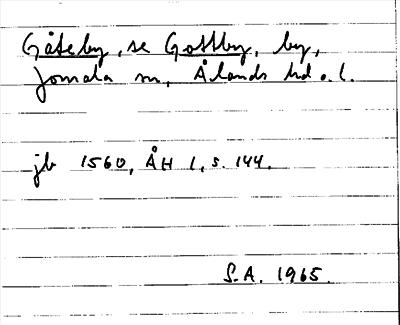 Gåteby, se Gottby, by,
Jomala sn, Ålands hd o. l.
jb 1560, ÅH 1, s. 144.
S.A. 1965.